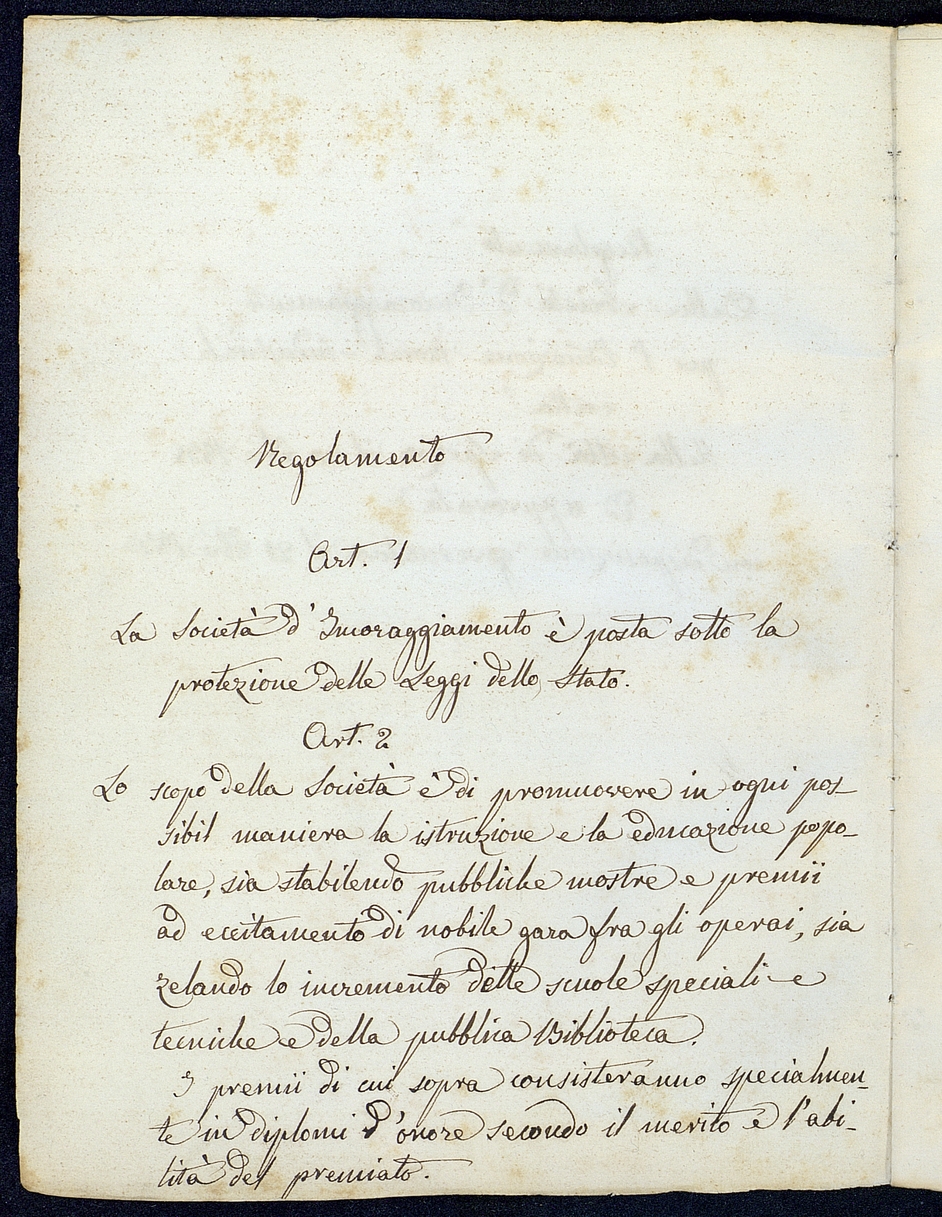 Regolamento
Art. 1
La Società d'Incoraggiamento è posta sotto la
protezione delle Leggi dello Stato.
Art. 2
Lo scopo della Società è di promuovere in ogni pos-
sibil maniera la istruzione e la educazione popo-
lare, sia stabilendo pubbliche mostre e premii
ad eccitamento di nobile gara fra gli operai, sia
zelando lo incremento delle scuole speciali e
tecniche e della pubblica Biblioteca.
I premii di cui sopra consisteranno specialmen-
te in diplomi d'onore secondo il merito e l'abi-
lità del premiato.